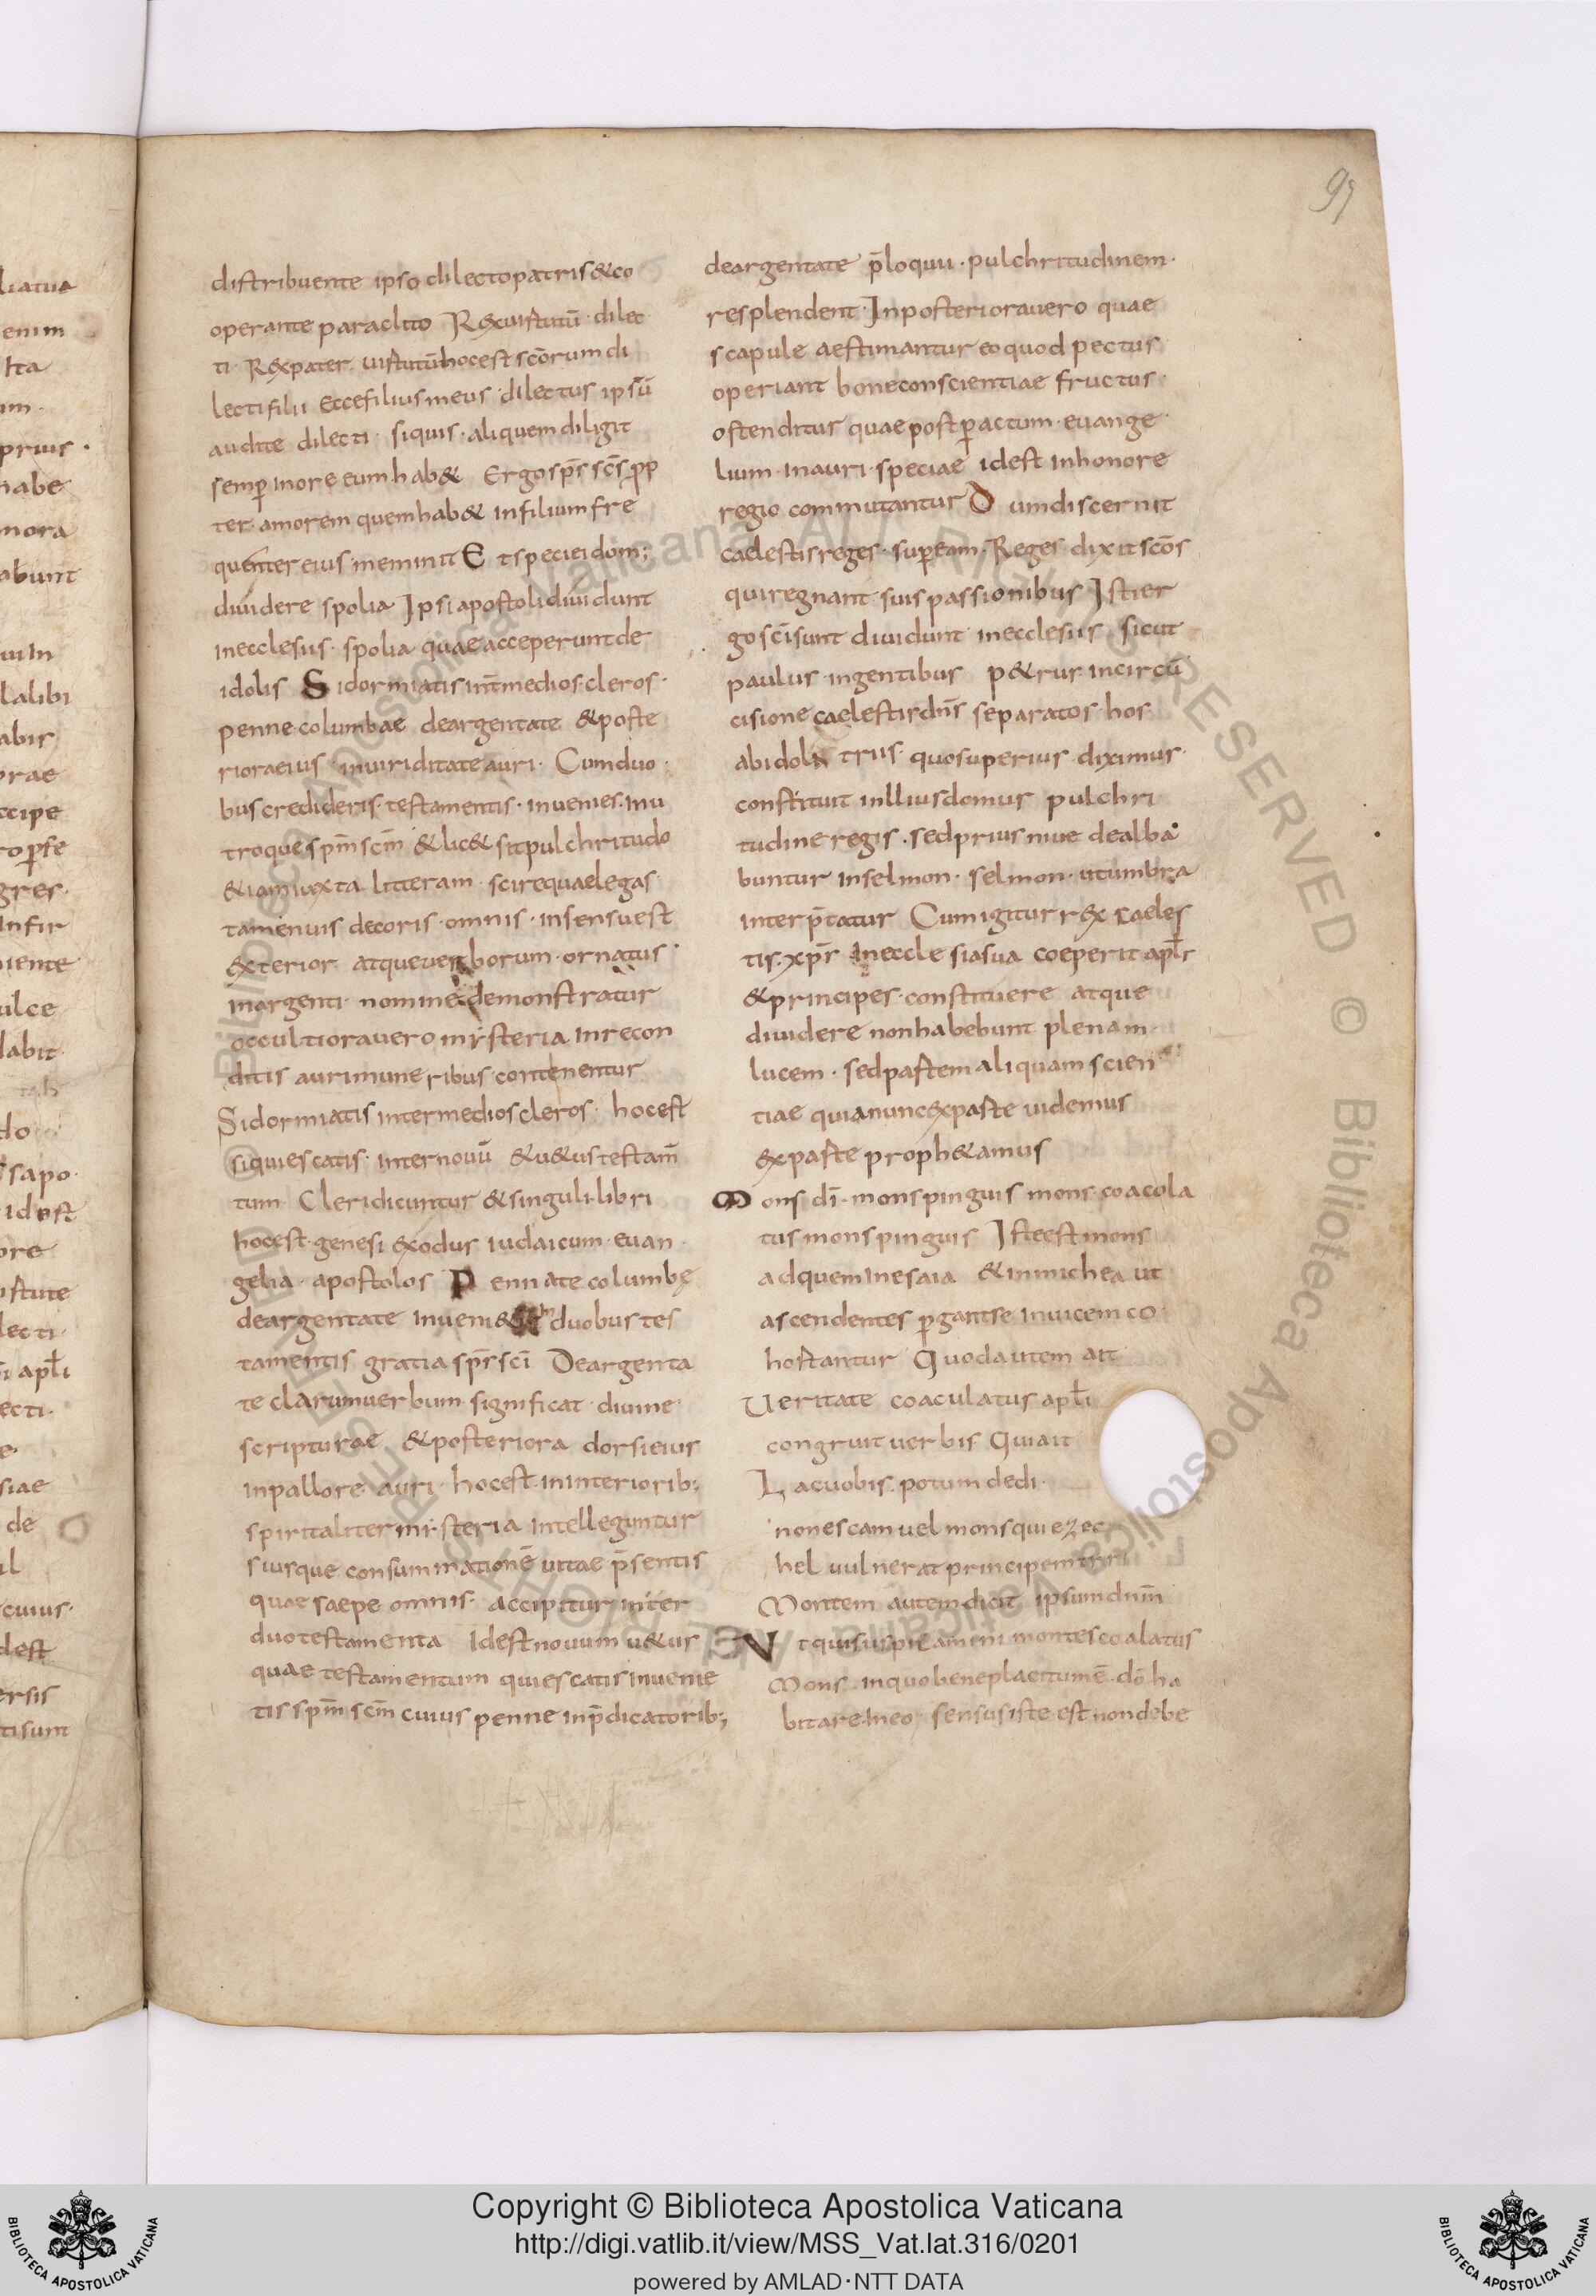 99
distribuente ipso dilectopatris&co
operante paraclito Rexuirtutū · dilec
ti · Rexpater uirtutūhocest scōrum di
lecti filii eccefilius meus · dilectus ipsū
audite dilecti · siquis · aliquem diligit
semp̄ inore eum hab& Ergo sps̄ scs̄ prop
ter amorem quemhab& infilium fre
quenter eius meminit E tspeciei dom;
diuidere spolia Ipsi apostoli diuidunt
inecclesiis · spolia quae acceperunt de
idolis Sidormiatis int̄medios · cleros ·
penne · columbae deargentate & poste
riora eius · inuiriditate auri · Cumduo
bus credideris · testamentis · inuenies · inu
troque spm̄ scm̄ & lic& sit pulchritudo
&iam iuxta litteram · scirequaelegas
tamenuis decoris · omnis · insensu est
exterior atque uerborum · ornatus ·
inargenti · nomine demonstratur
occultiora uero misteria inrecon
ditis auri muneribus · contenentur
Sidormiatis intermedios cleros · hocest
siquiescatis · internouū & u&us testam̄
tum Cleri dicuntur & singuli · libri
hocest · genesi exodus iudaicum · euan
gelia · apostolos Pennate columbę
deargentate inueni& in duobus tes
tamentis gratia spr̄ scī Deargenta
te clarumuerbum · significat · diuine
scripturae & posteriora dorsi eius
inpallore auri · hocest · ininteriorib;
spiritaliter misteria intelleguntur
siusque consummationē uitae p̄sentis
quae saepe omnis · accipitur inter
duo testamenta Idest nouum u&us
quae testamentum quiescatis inuenie
tis spm̄ scm̄ cuius penne inp̄dicatorib;
deargentate p̄loquii · pulchritudinem ·
resplendent · Inposteriorauero quae
scapule aestimantur eo quod pectus
operiant bone conscientiae fructus ·
ostenditus quae post p̄actum · euange
lium · inauri · speciae idest inhonore
regio commutantur Dum discernit
caelestis reges · sup̄ eam · Reges dixit scōs
qui regnant suis passionibus Ister
go scī sunt diuidunt inecclesiis sicut
paulus ingentibus p&rus incircū
cisione caelestis dns̄ separatos · hos
abidolatriis · quosuperius diximus ·
constituit in illius domus pulchri
tudine regis · sed prius niue dealba
buntur inselmon · selmon · utumbra
interp̄tatur Cum igitur rex caeles
tis · xpr̄ Ineccle sia sua coeperit apl̄r
& principes · constituere atque
diuidere non habebunt plenam ·
lucem · sed partem aliquam scien
tiae quia nunc exparte uidemus
exparte proph&amus
Mons dī · mons pinguis mons · coacola
tus mons pinguis Iste est mons
adquem inesaia & inmichea ut
ascendentes p̄gant se inuicem co
hortantur Quod autem ait
Ueritate coaculatus apl̄i
congruit uerbis Qui ait
Lac uobis · potum dedi ·
non escam uel mons qui ezec
hel uulnerat principem
Montem autem dicit ipsum dnm̄
Ut quid suspicamini montes coalatus
Mons inquo beneplacitumē · dō ha
bitare · Ineo sensus iste est non debe
Copyright © Biblioteca Apostolica Vaticana
http://digi.vatlib.it/view/MSS_Vat.lat.316/0201
powered by AMLAD·NTT DATA